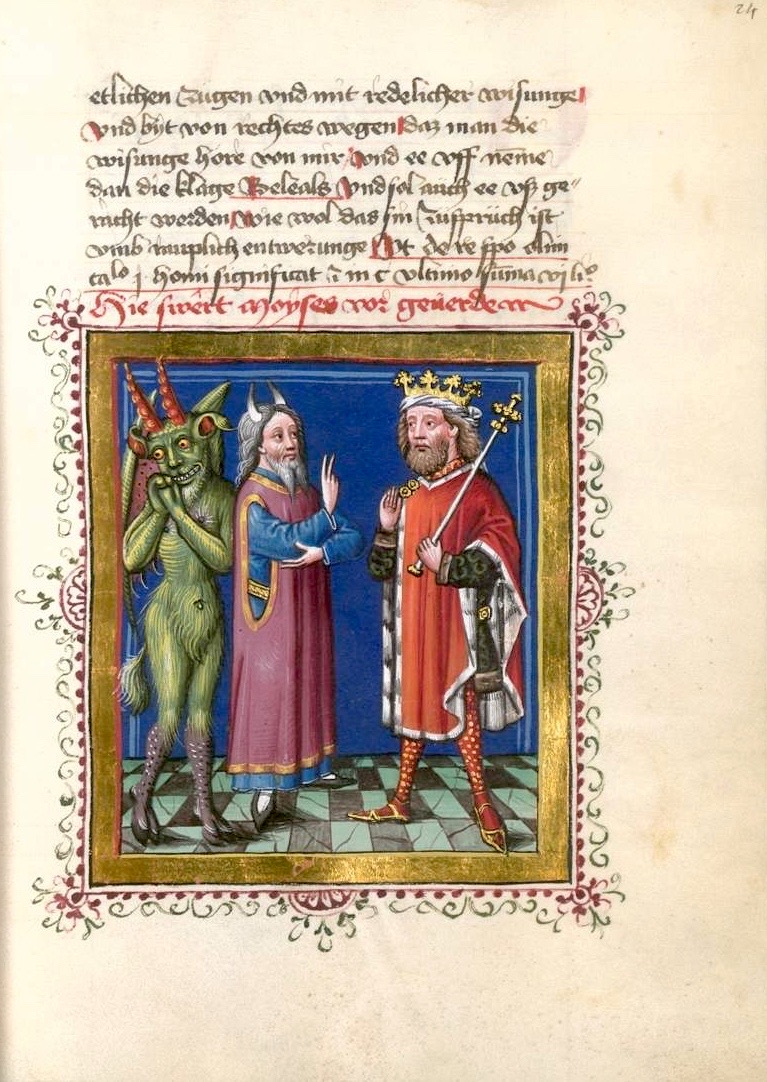 24
etlichen Zugen vnd mit redelicher wisunge
vnd byt von rechtes wegen daz man die
wisunge hore von mir vnd ee vff neme
dan die klage Beleals vnd sol auch ee vß ge"
racht werden wie wol das sin Zusprüch ist
vmb rauplich entwerunge Vt de re spo olim
calo j homi significat & in c vltimo
Hie swert Moyses vor geuerde